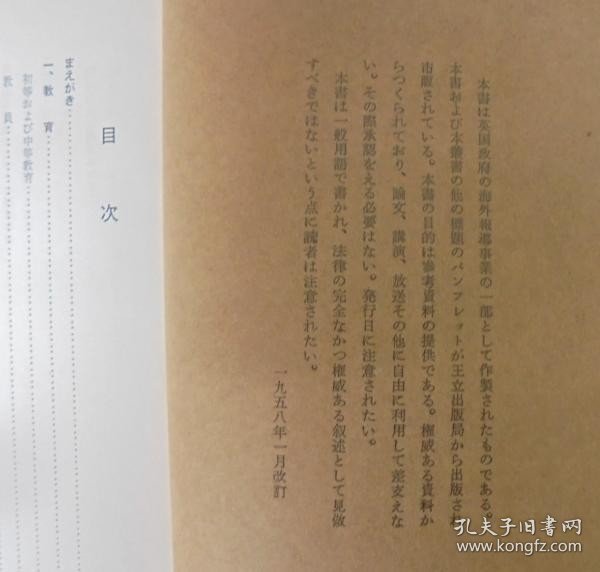 本書は英国政府の海外報導事業の一部として作製されたものである。
本書および本叢書の他の標題のパンフレットが王立出版局から出版され
市販されている。本書の目的は参考資料の提供である。権威ある資料か
らつくられており、論文、講演、放送その他に自由に利用して差支えな
い。その際承認をえる必要はない。発行日に注意されたい。
本書は一般用語で書かれ、法律の完全なかつ権威ある叙述として見做
すべきではないという点に読者は注意されたい。
一九五八年一月改訂
目次
まえがき
一、教育
初等および中等教育
教員
孔夫子旧书网
www.kongfz.com